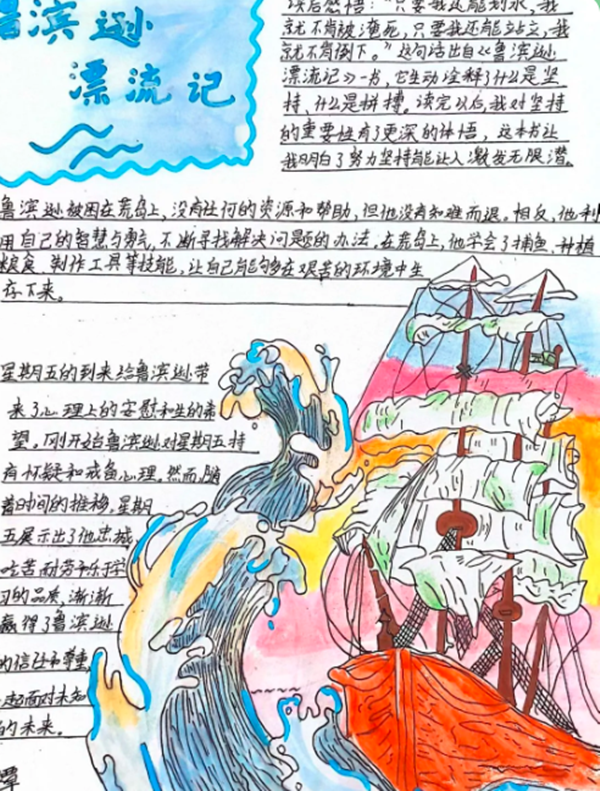 鲁滨逊
漂流记
读后感悟:"只要我还能划水,我
就不肯被淹死,只要我还能站立,我
就不肯倒下。"这句话出自《鲁滨逊
漂流记》一书,它生动诠释了什么是坚
持、什么是拼搏。读完以后,我对坚持
的重要性有了更深的体悟,这本书让
我明白了努力坚持能让人激发无限潜。
鲁滨逊被困在荒岛上,没有任何的资源和帮助,但他没有知难而退。相反,他利
用自己的智慧与勇气,不断寻找解决问题的办法。在荒岛上,他学会了捕鱼、种植
粮食、制作工具等技能,让自己能够在艰苦的环境中生
存下来。
星期五的到来给鲁滨逊带
来了心理上的安慰和生的希
望。刚开始鲁滨逊对星期五持
有怀疑和戒备心理。然而,随
着时间的推移,星期
五展示出了他忠诚、
吃苦耐劳和乐于学
习的品质,渐渐
赢得了鲁滨逊
的信任和尊重
起面对未知
的未来。
潭